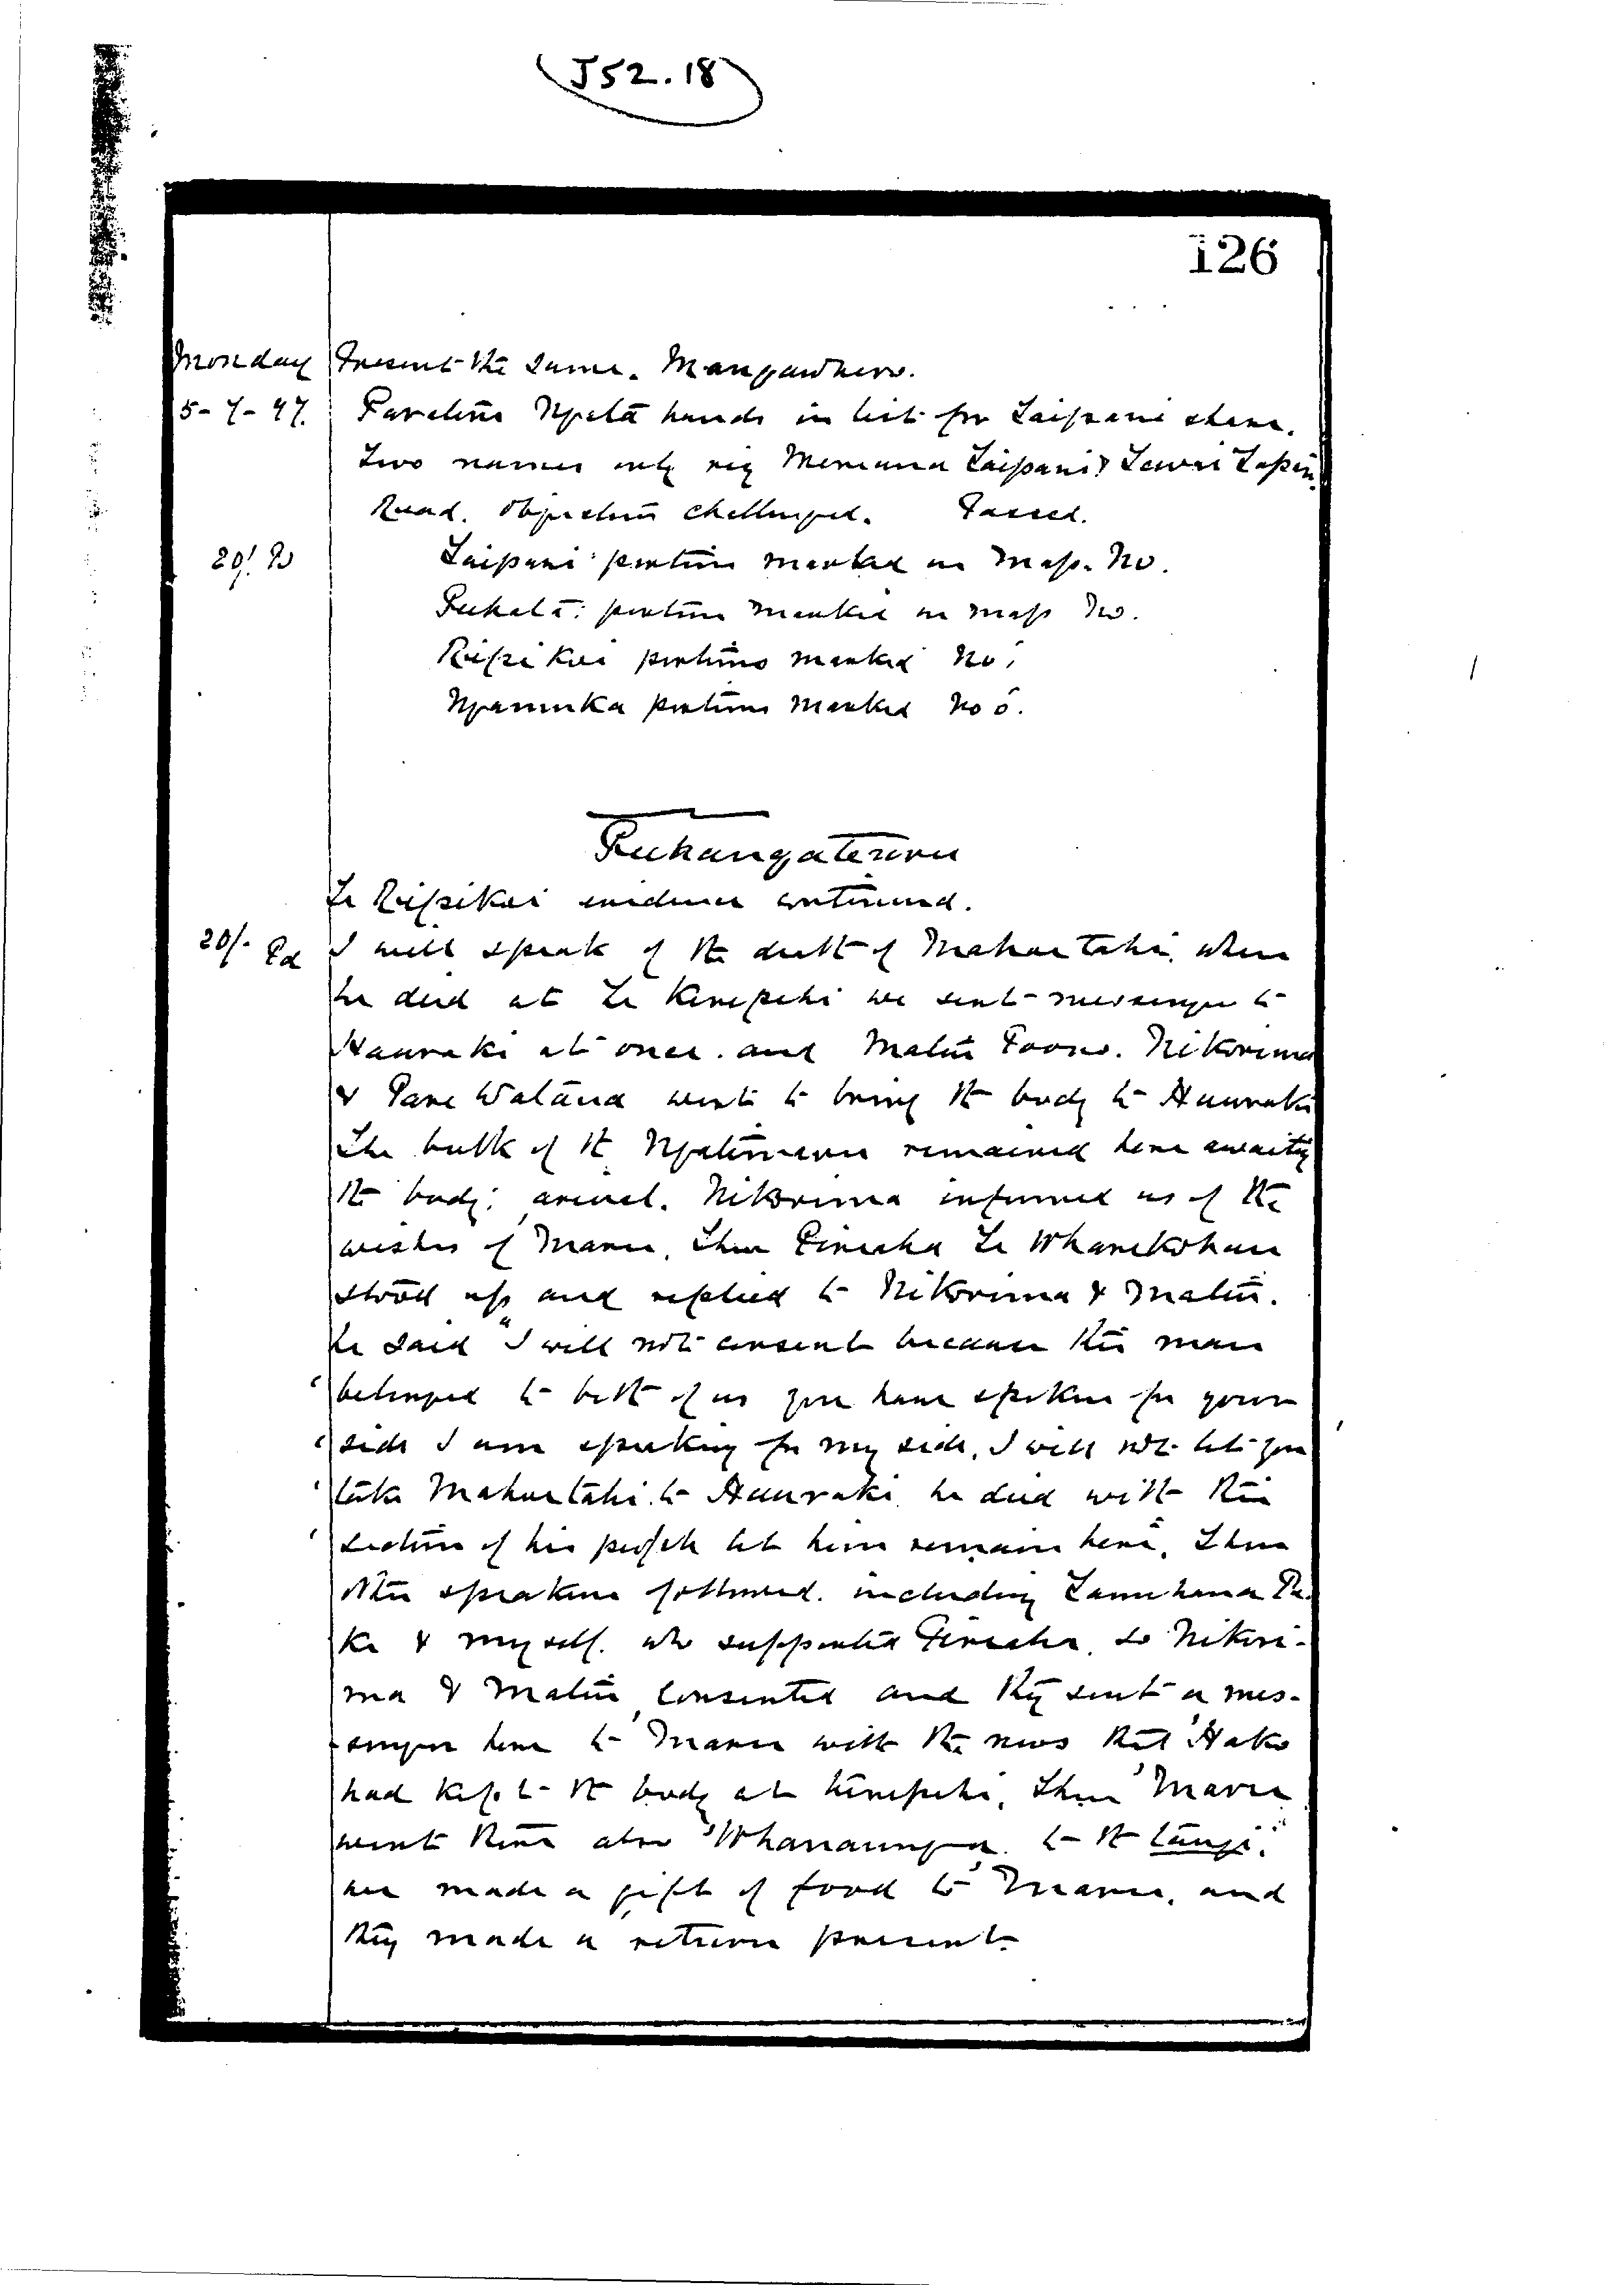 J52.18
126
Monday Present the same. Mangawhero.
5-7-97. hands in list for Taipari share.
Two names only viz Meriana Taipari &
Read. Objection challenged. Passed.
20/. Pd Taipari portion marked on map. No.
portion marked on map No.
Ripikoi portions marked No.
portions marked No
Te Ripikoi evidence continued.
20/. Pd I will speak of the death of Mahuetahi, when
he died at Te Kerepehi we sent messenger to
Hauraki at once. and Matiu Poono. Nikorima
& Pare Watana went to bring the body to Hauraki
The bulk of the Ngatimaru remained here awaiting
the body: arrival. Nikorima informed us of the
wishes of Maru, Then Te Wharekohai
stood up and replied to Nikorima & Matiu.
he said "I will not consent because this man
"belonged to both of us you have spoken for your
"side I am speaking for my side, I will not let you
"take Mahuetahi to Hauraki, he died with this
"section of his people let him remain here, Then
other speakers followed. including Tamihana Tu-
ke & myself. who supported so Nikori-
ma & Matiu consented and they sent a mes-
senger here to Maru with the news that Hako
had kept the body at Kerepehi, Then Maru
went there also Whanaunga to the tangi.
we made a gift of food to Maru, and
they made a return present.